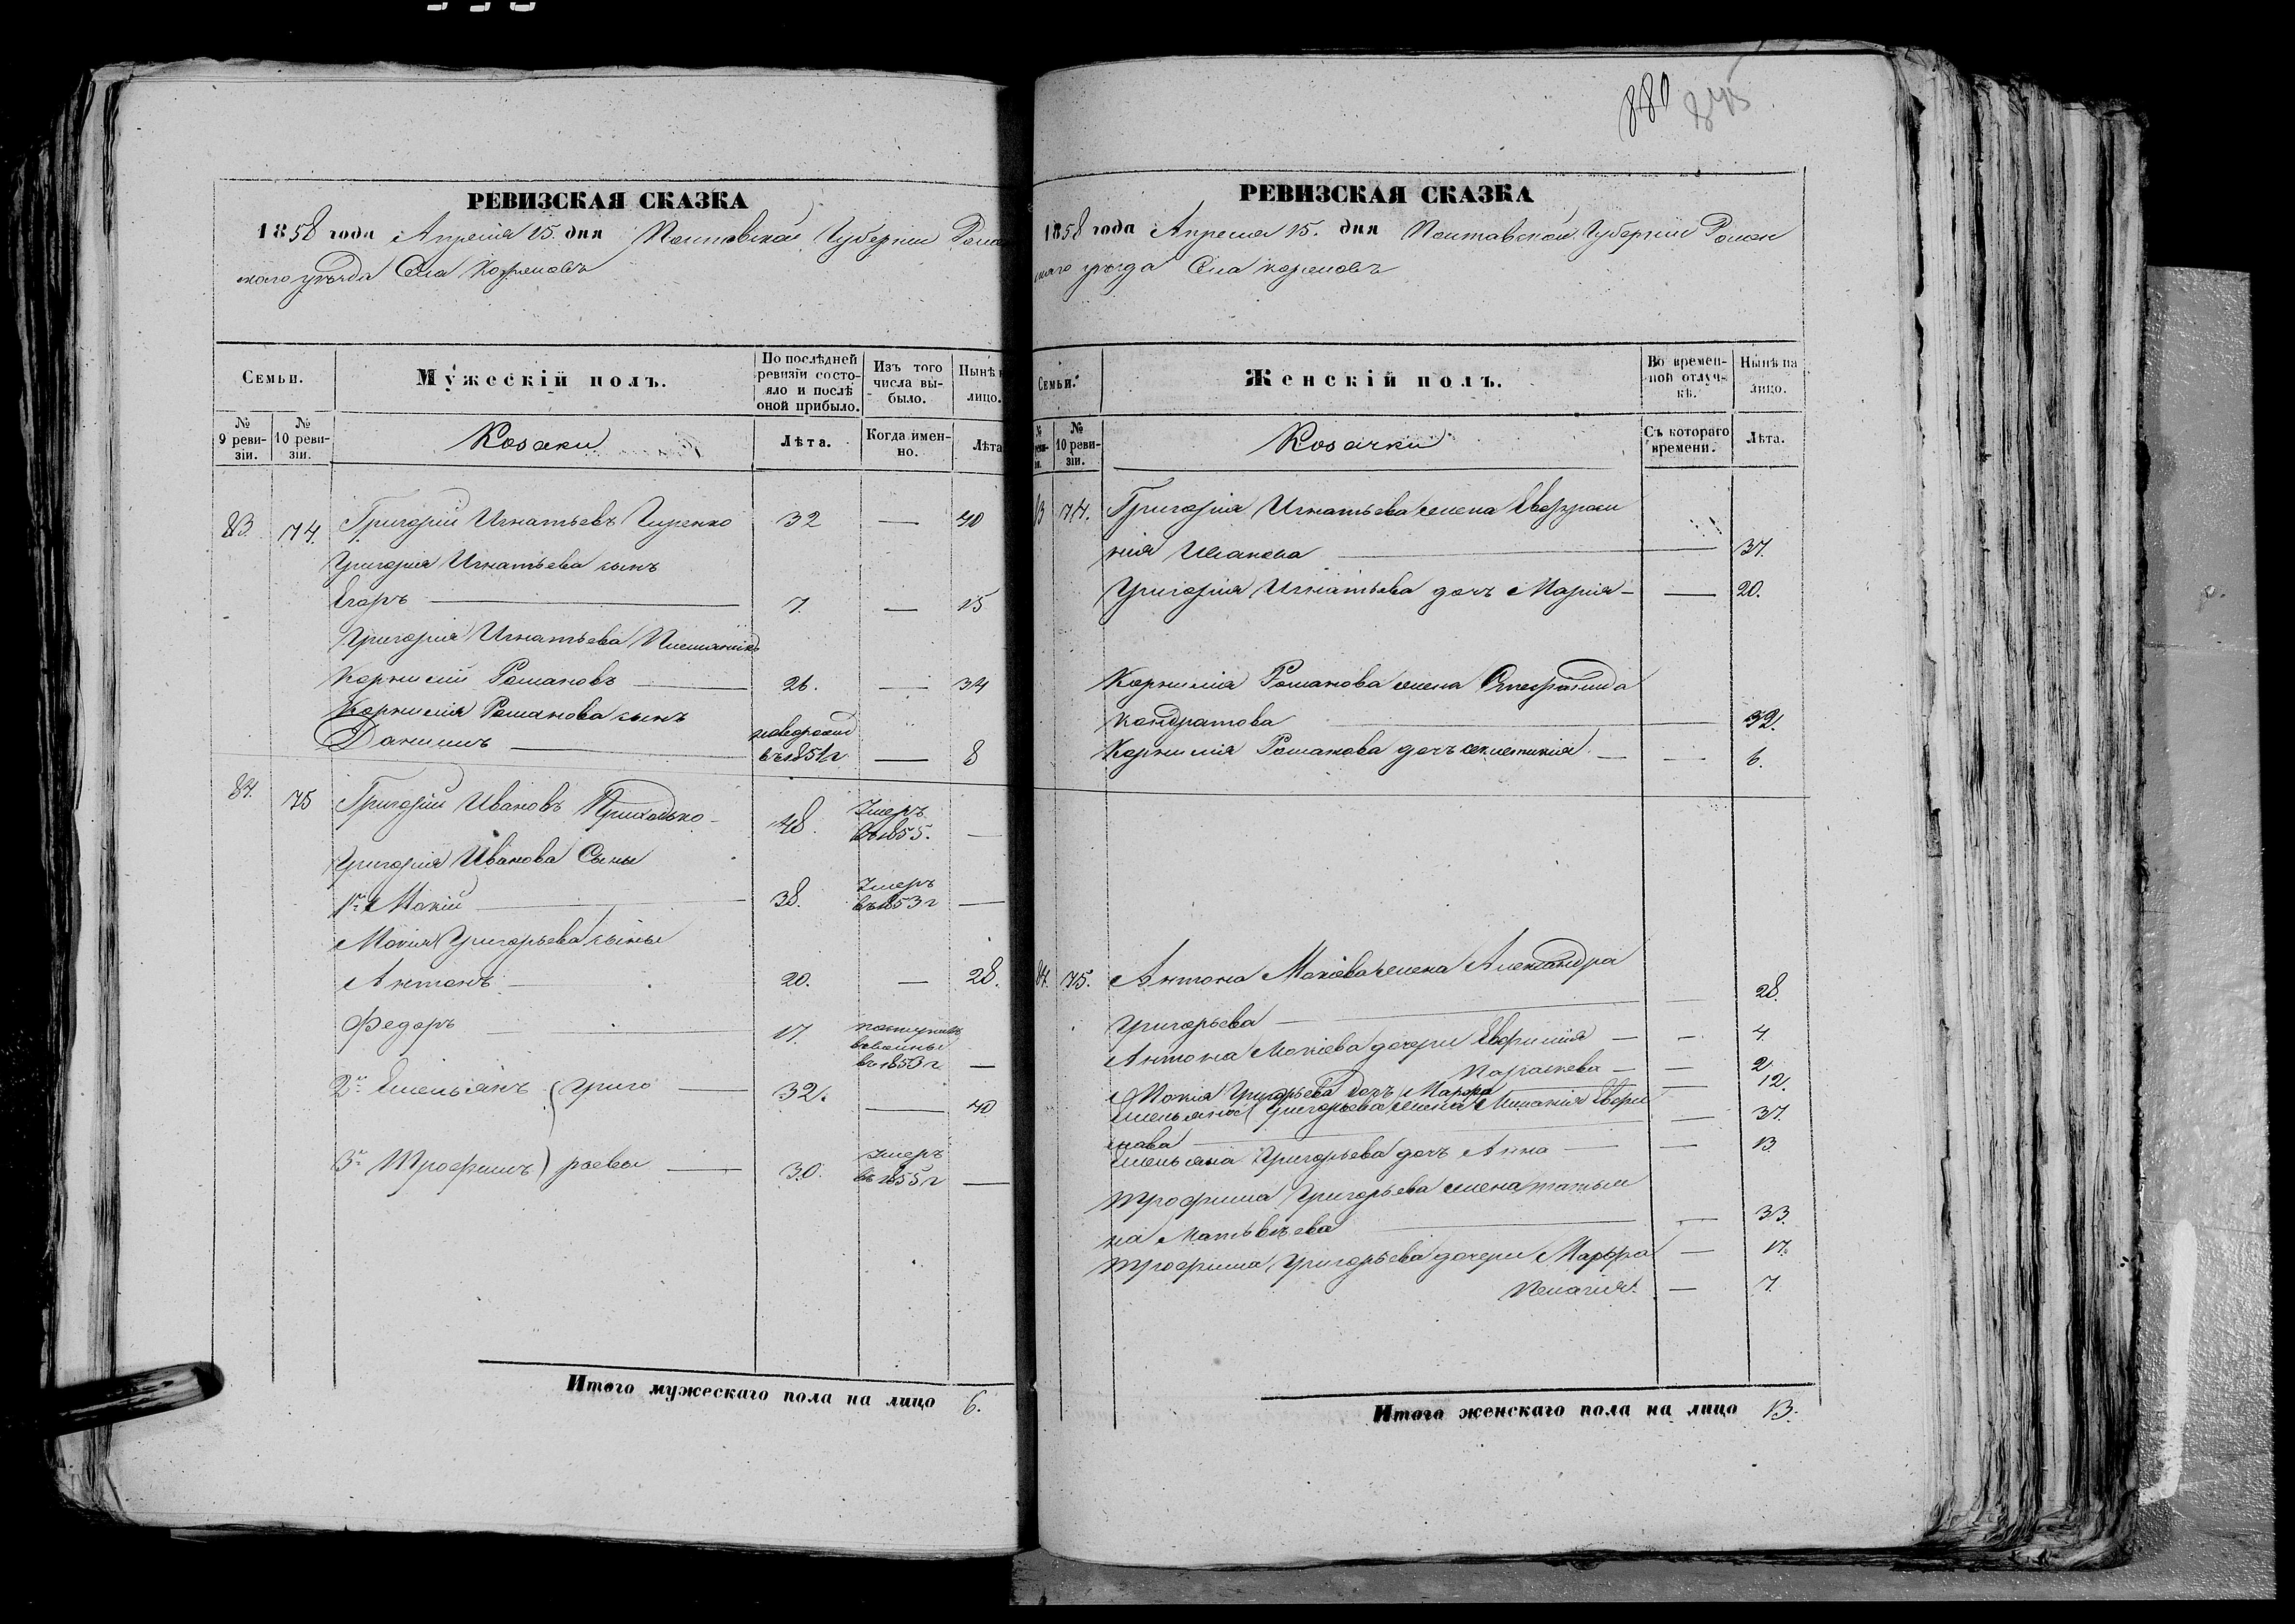 880 845
РЕВИЗСКАЯ СКАЗКА
1858 года Апреля 15. дня Полтавской Губернии Роменскаго уѣзда Села
Семьи.
Мужескій полъ.
По послѣдней ревизіи состояло и послѣ оной прибыло.
Изъ того числа выбыло.
Нынѣ
лицо.
№ 9 ревизіи.
№ 10 ревизіи.
Козаки
Лѣта.
Когда именно.
Лѣта
83. 74. Григорій Игнатьевъ 32 — 40
Григорія Игнатьева сынъ
Егоръ — 7. — 15
Григорія Игнатьева Племянникъ
Корнилій Романовъ — 26. — 34
Корнилія Романова сынъ
Данилъ — новорожд въ 1851 г — 8
84. 75 Григорій Ивановъ Приходько 48. Умеръ въ 1855. —
Григорія Иванова Сыны
1й Мокій — 38. Умеръ въ 1853 г —
Мокія Григорьева сыны
Антонъ — 20. — 28.
Федоръ — 17. въ 1853 г. —
2й Емельянъ ( Григо — 32. — 40
3й Трофимъ ) рьевы — 30. Умеръ въ 1855 г —
Итого мужескаго пола на лицо 6.
РЕВИЗСКАЯ СКАЗКА
1858 года Апреля 15. дня Полтавской Губернии Ромен
скаго уѣзда Села
Семьи.
Женскій полъ.
Во временной отлучкѣ.
Нынѣ на лицо.
№ 10 ревизіи.
Козачки
Съ котораго времени.
Лѣта.
83 74. Григорія Игнатьева жена Евфроси
нія Иванова — 37.
Григорія Игнатьева дочь Марія — — 20.
Корнилія Романова жена Степанида
Кондратова — 32.
Корнилія Романова дочь — — 6.
84. 75. Антона Мокіева жена Александра
Григорьева — — 28.
Антона Мокіева дочери Евфимія — — 4.
Параскева — — 2
Мокія Григорьева дочь Марфа — 12.
Емельяна Григорьева жена Меланія Евфи
мова — — 37.
Емельяна Григорьева дочь Анна — — 13.
Трофима Григорьева жена Татья
на Матьвѣева — — 33.
Трофима Григорьева дочери Марфа — 17.
Пелагія. — 7.
Итого женскаго пола на лицо 13.